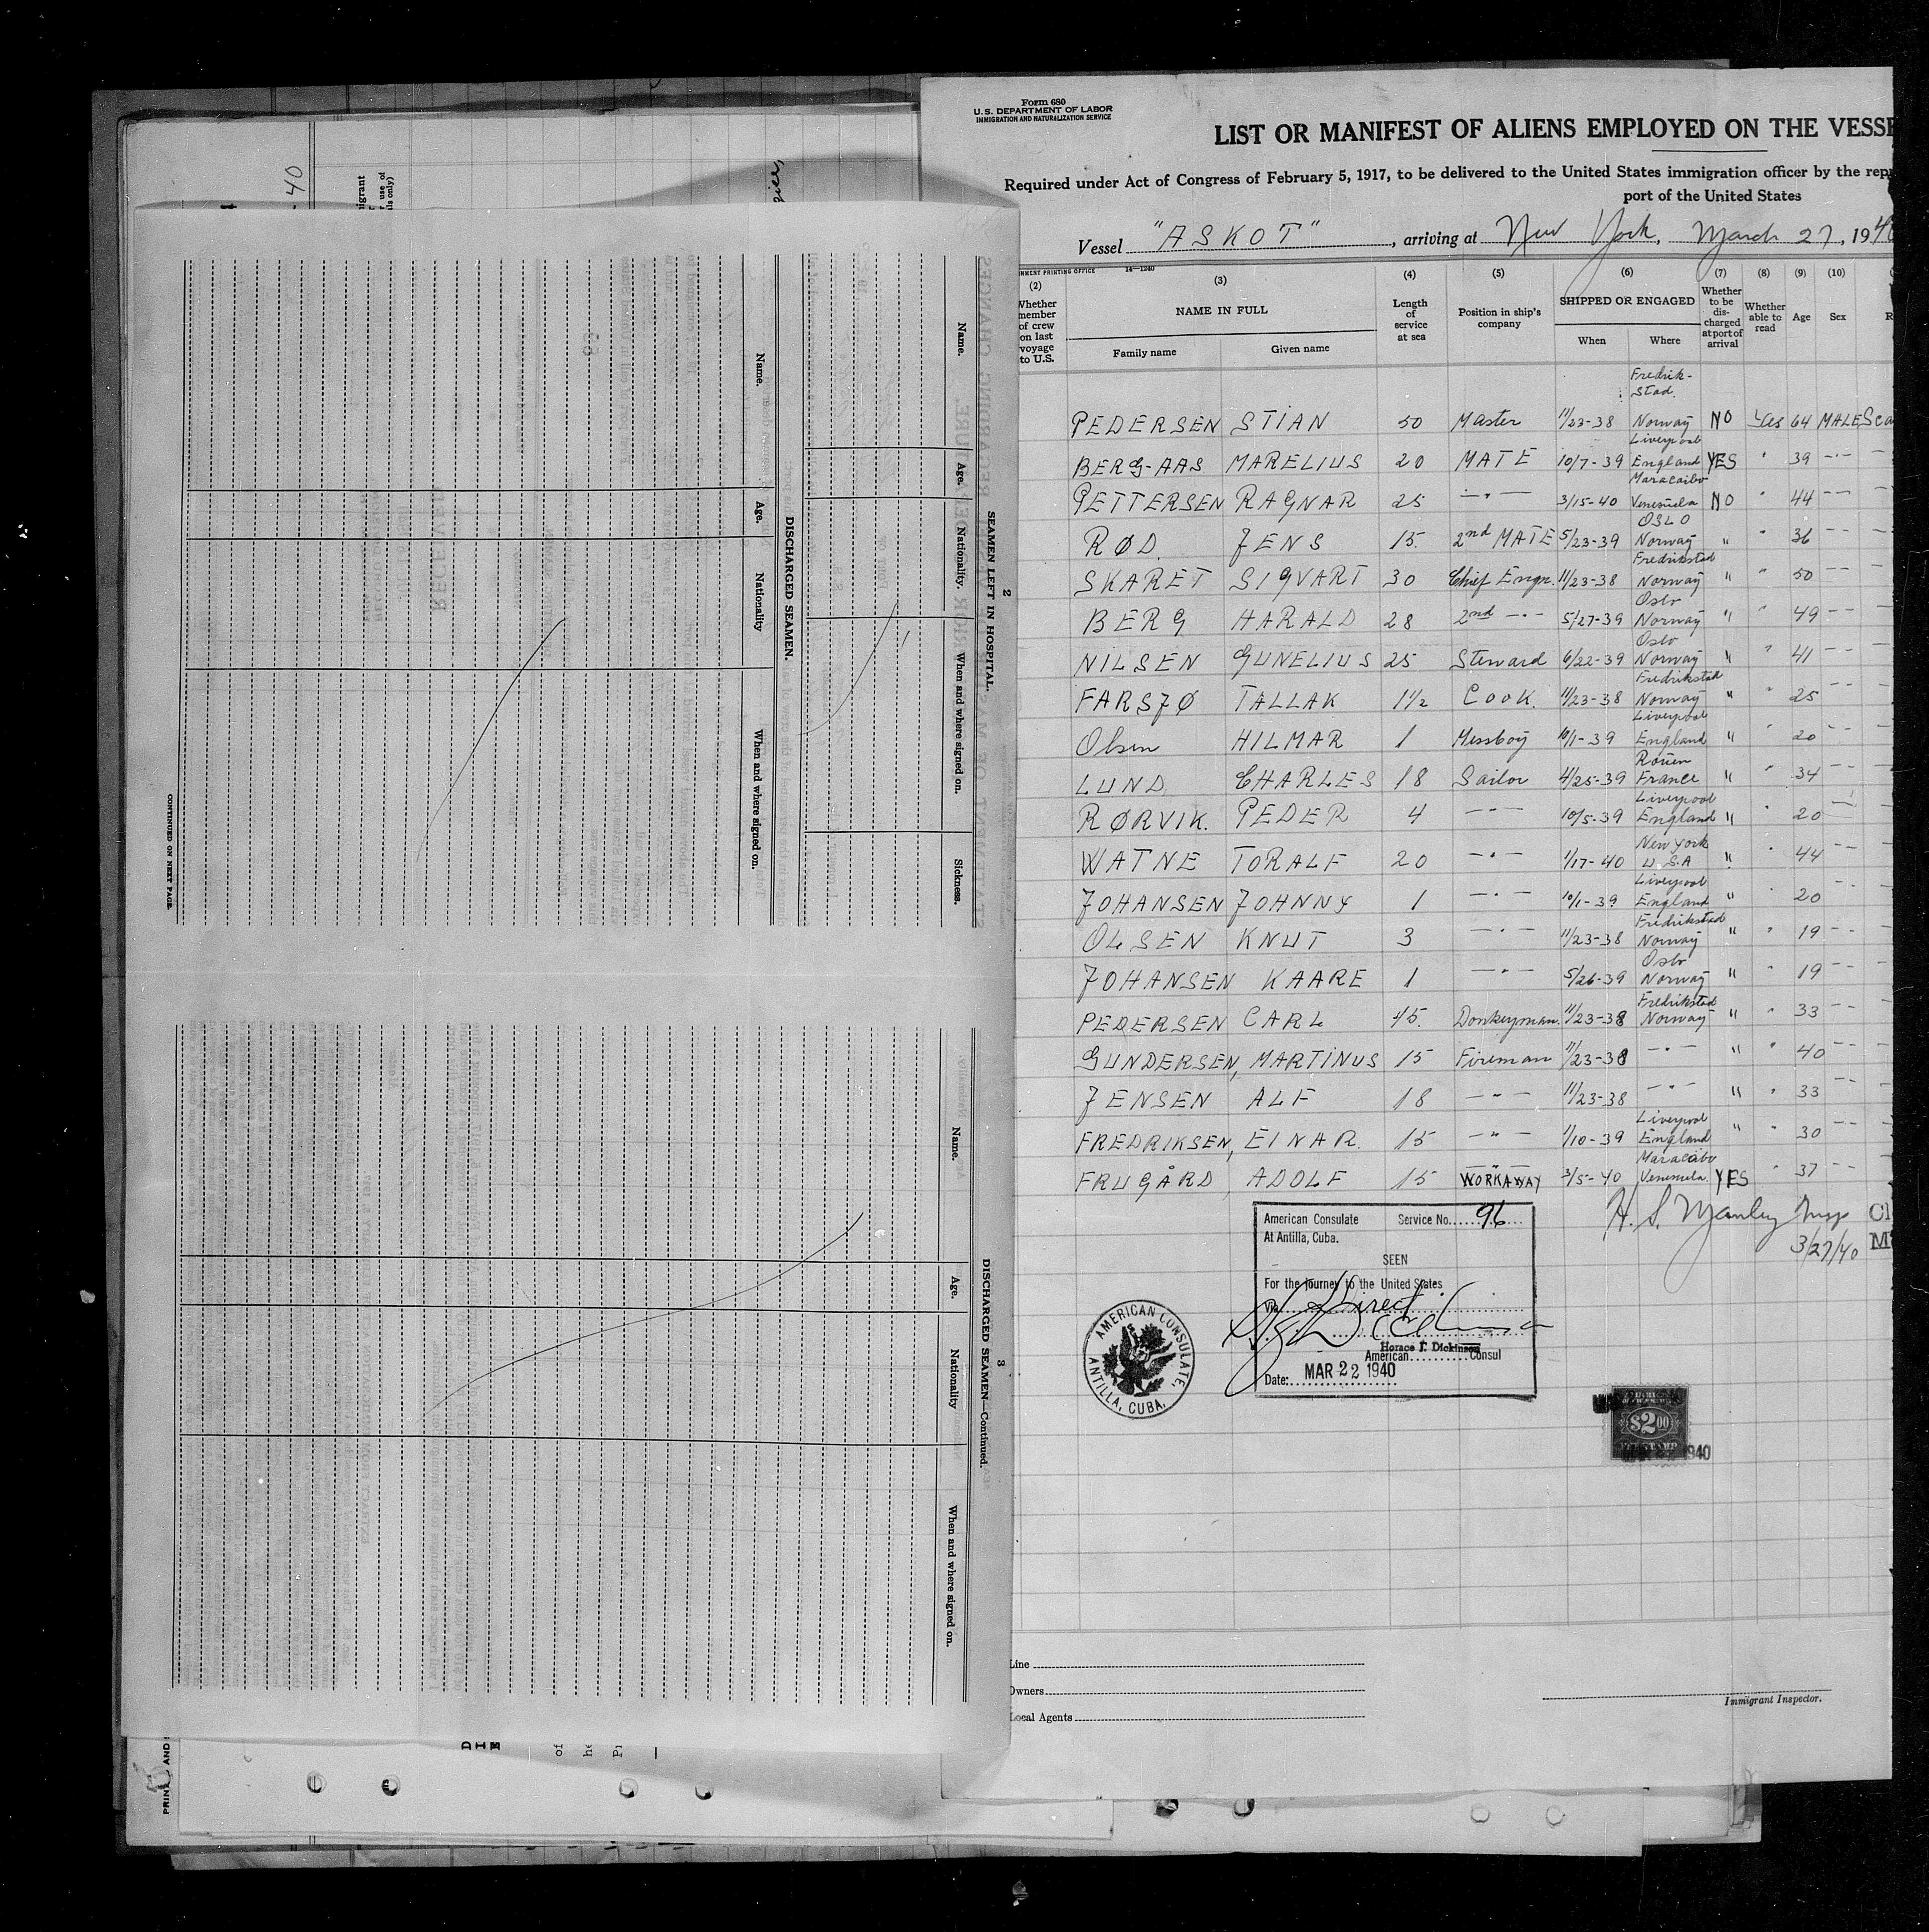 Form 680
U.S. DEPARTMENT OF LABOR
IMMIGRATION AND NATURALIZATION SERVICE
LIST OR MANIFEST OF ALIENS EMPLOYED ON THE VESSE
Required under Act of Congress of February 5, 1917, to be delivered to the United States immigration officer by the rep
port of the United States
Vessel "ASKOT", arriving at New York, March 27, 1940
NMENT PRINTING OFFICE 14—1240
(2) (3) (4) (5) (6) (7) (8) (9) (10)
Whether member of crew on last voyage to U.S.
NAME IN FULL
Family name Given name
Length of service at sea
Position in ship's company
SHIPPED OR ENGAGED
When Where
Whether to be discharged at port of arrival
Whether able to read
Age
Sex
R
Fredrik-
stad.
PEDERSEN STIAN 50 Master 11/23-38 Norway NO Yes 64 MALE Sca
Liverpool
BERG-AAS MARELIUS 20 MATE 10/7-39 England YES " 39 -"- —
Maracaibo
PETTERSEN RAGNAR 25 —"— 3/15-40 Venezuela NO " 44 -- —
OSLO
RØD JENS 15 2nd MATE 5/23-39 Norway " " 36 -- —
Fredrikstad
SKARET SIGVART 30 Chief Engr. 11/23-38 Norway " " 50 -- —
Oslo
BERG HARALD 28 2nd -"- 5/27-39 Norway " " 49 -- —
Oslo
NILSEN GUNELIUS 25 Steward 6/22-39 Norway " " 41 -- —
Fredrikstad
FARSJØ TALLAK 1½ COOK. 11/23-38 Norway " " 25 -- —
Liverpool
Olsen HILMAR 1 Messboy 10/1-39 England " " 20 -- —
Rouen
LUND CHARLES 18 Sailor 4/25-39 France " " 34 -- —
Liverpool
RØRVIK. PEDER 4 —"— 10/5-39 England " " 20 -- —
New York
WATNE TORALF 20 —"— 1/17-40 U.S.A " " 44 -- —
Liverpool
JOHANSEN JOHNNY 1 —"— 10/1-39 England " " 20 -- —
Fredrikstad
OLSEN KNUT 3 —"— 11/23-38 Norway " " 19 -- —
Oslo
JOHANSEN KAARE 1 —"— 5/26-39 Norway " " 19 -- —
Fredrikstad
PEDERSEN CARL 15. Donkeyman. 11/23-38 Norway " " 33 -- —
GUNDERSEN, MARTINUS 15 Fireman 11/23-38 —"— " " 40 -- —
JENSEN ALF 18 —"— 11/23-38 —"— " " 33 -- —
Liverpool
FREDRIKSEN, EINAR. 15 —"— 1/10-39 England " " 30 -- —
Maracaibo
FRUGÅRD, ADOLF 15 WORKAWAY 3/5-40 Venezuela. YES " 37 -- —
H. S. Manley Insp
3/27/40
American Consulate Service No. 96
At Antilla, Cuba.
SEEN
For the journey to the United States
Via Direct
Horace J. Dickinson
American Consul
Date: MAR 22 1940
AMERICAN CONSULATE,
ANTILLA, CUBA.
$2.00
1940
Line
Owners
Local Agents
Immigrant Inspector.
- 40
2
SEAMEN LEFT IN HOSPITAL.
Name. Age. Nationality. When and where signed on. Sickness.
DISCHARGED SEAMEN.
Name. Age. Nationality When and where signed on.
CONTINUED ON NEXT PAGE.
3
DISCHARGED SEAMEN—Continued.
Name. Age. Nationality When and where signed on.